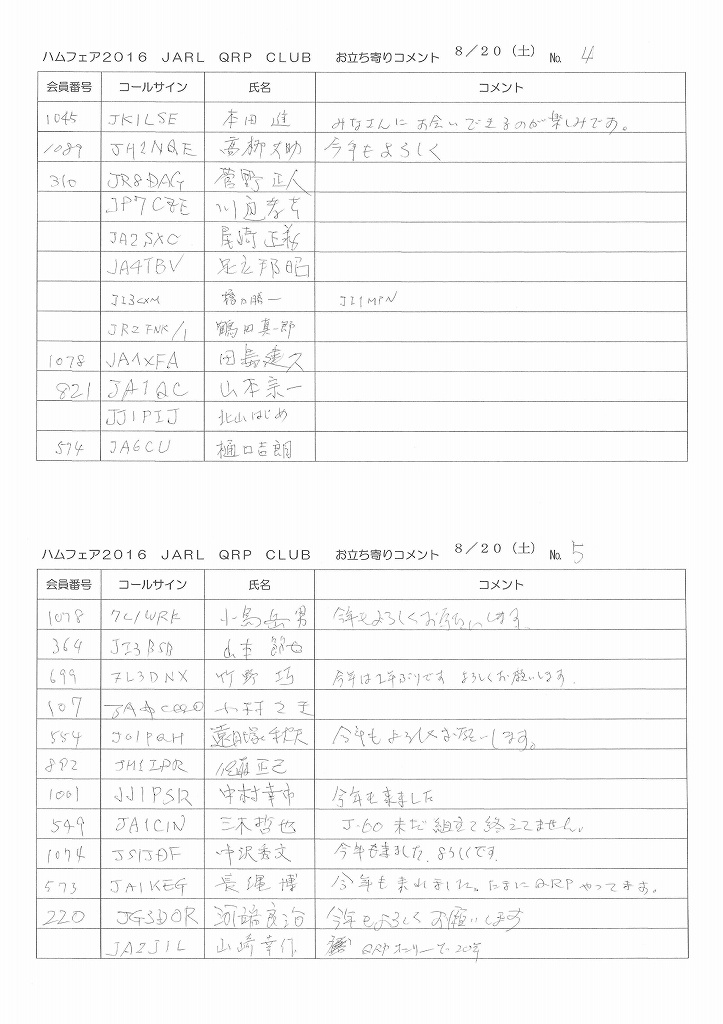 ハムフェア2016 JARL QRP CLUB お立ち寄りコメント 8/20(土) No. 4
会員番号 コールサイン 氏名 コメント
1045 JK1LSE 本田 進 みなさんに お会いできるのが楽しみです。
1089 JH1NQE 高柳 今年もよろしく
310 JR8DAG 菅野 正人
JP7C 川
JA2SXC 尾崎
JA4TBV 足立邦昭
JI3CXM 勝一 JI1MPN
JR2FNK/1 鶴田真一郎
1078 JA1XFA 田
821 JA1QC 山本宗一
JJ1PIJ 北山はじめ
574 JA6CU 樋口吉朗
ハムフェア2016 JARL QRP CLUB お立ち寄りコメント 8/20(土) No. 5
会員番号 コールサイン 氏名 コメント
1078 7L1WRK 小島岳男 今年もよろしくお願いします
364 JI3BSB 山本
699 7L3DNX 竹野 巧 今年は2年ぶりです よろしくお願いします.
107 小村
554 JO1PQH 今年もよろしくお願いします。
892 JH1IPR 佐藤正己
1001 JJ1PSR 中村幸市 今年も来ました
549 JA1CIN 三木哲也 J-60 未だ組立て終えてません。
1074 中沢秀文 今年も来ました、よろしくです.
573 JA1KEG 長縄 博 今年も来れました。たまにQRPやってます。
220 JG3DOR 河崎良治 今年もよろしくお願いします
JA2JIL 山崎幸作 QRPオンリーで20年